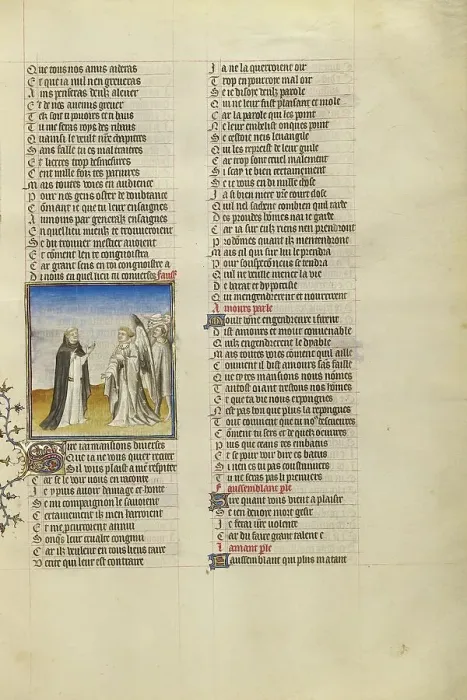 Que tous nos amis aideras
Et que ia nul nen greveras
Ains penseras deulz alever
Et de nos anemis grever
Tu me seras roys des ribaus
Quainsi le veult nre chapitres
Sans faille tu es mal traitres
Et lierres trop desmesures
Cent mille fois tes pariures
Mais toutes voies en audience
Pour nos gens oster de doubtance
Cōmant ie que tu leur enseignes
Au moins par generalz enseignes
En quel lieu mieulz te trouveroient
Se du trouver mestier avoient
Et cōment len te congnoistra
Car grant sens en toi congnoistre a
Di nous en quel lieu tu converses faulx
Sire iai mansions diverses
Que ia ne vous quier reciter
Sil vous plaist a men respiter
Car se le voir vous en raconte
Ie y puis avoir damage et honte
Se mi compaignon le savoient
Certainement il men harroient
Et me pourroient annui
Car ilz veulent en tous lieus taire
Verite qui leur est contraire
Ia ne la querroient oir
Trop en pourroie mal oir
Se ie disoie deulz parole
Qui ne leur fust plaisant et mole
Car la parole qui les point
Ne leur embelist onques point
Se cestoit neis leuangile
Qui les repreist de leur guile
Car trop sont cruel malement
Si scay ie bien certainement
Se ie vous en di nulle chose
Ia si bien niert vre court close
Quil nel sachent combien quil tarde
Des preudes hōmes nai ie garde
Car ia sur eulz riens nen prendront
Prodōmes quant il mentendront
Mais cil qui sur lui le prendra
Pour souspeconneus se tendra
Quil ne veuille mener la vie
De barat et dypocrisie
Qui mengendrerent et nourrirent
Amours parle
Moult bōne engendreure i firent
Dist amours et moult convenable
Quilz engendrerent le dyable
Mais toutes voies cōment quil aille
Convient il dist amours sās faille
Que ci tes mansions nous nōmes
Tantost oiant trestous nos hōmes
Et que ta vie nous expongnes
Nest pas bon que plus la repongnes
Tout convient que tu nō descueuvres
Cōment tu sers et de quelz oeuvres
Puis que ceans tes embatus
Et se pour voir dire es batus
Si nen es tu pas coustumiers
Tu ne seras pas li premiers
Faussemblant ple
Sire quant vous vient a plaisir
Se ien devoie mort gesir
Ie ferai vre volente
Car du faire grant talent e
Lamant ple
Faussemblant qui plus natant